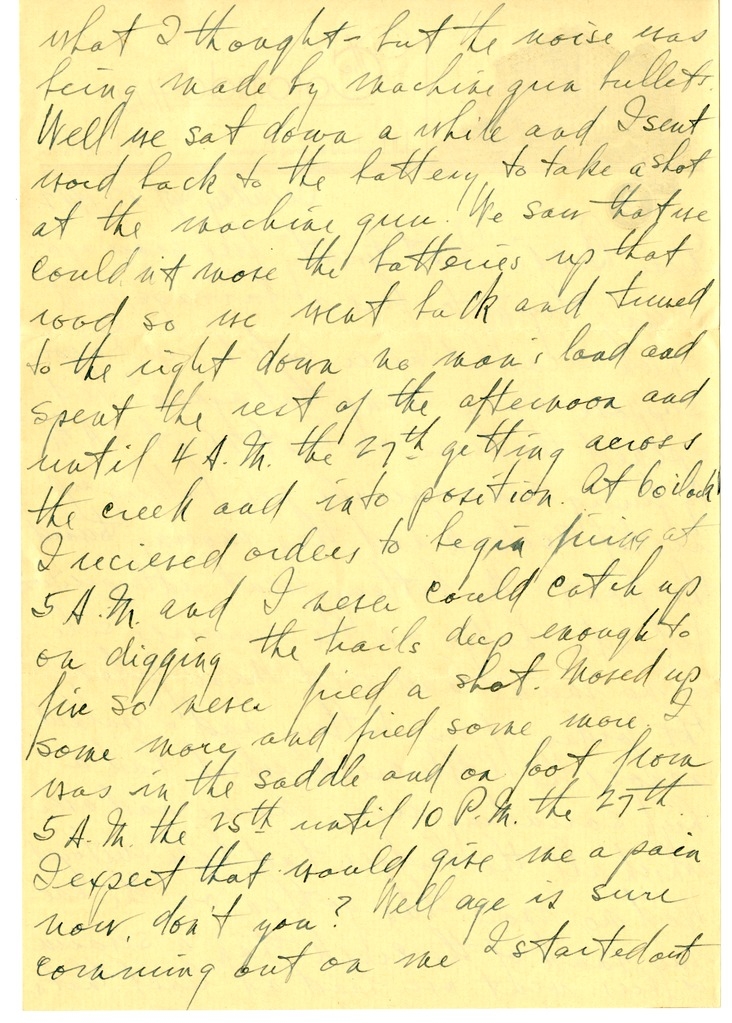 what I thought - but the noise was
being made by machine gun bullets.
Well we sat down a while and I sent
word back to the battery to take a shot
at the machine gun. We saw that we
couldn't move the batteries up that
road so we went back and turned
to the right down no man's land and
spent the rest of the afternoon and
until 4 A.M. the 27th getting across
the creek and into position. At 6 oclock
I recieved orders to begin firing at
5 A.M. and I never could catch up
on digging the trails deep enough to
fire so never fired a shot. Moved up
some more and fired some more. I
was in the saddle and on foot from
5 A.M. the 25th until 10 P.M. the 27th.
I expect that would give me a pain
now, don't you? Well age is sure
comming out on me I started out